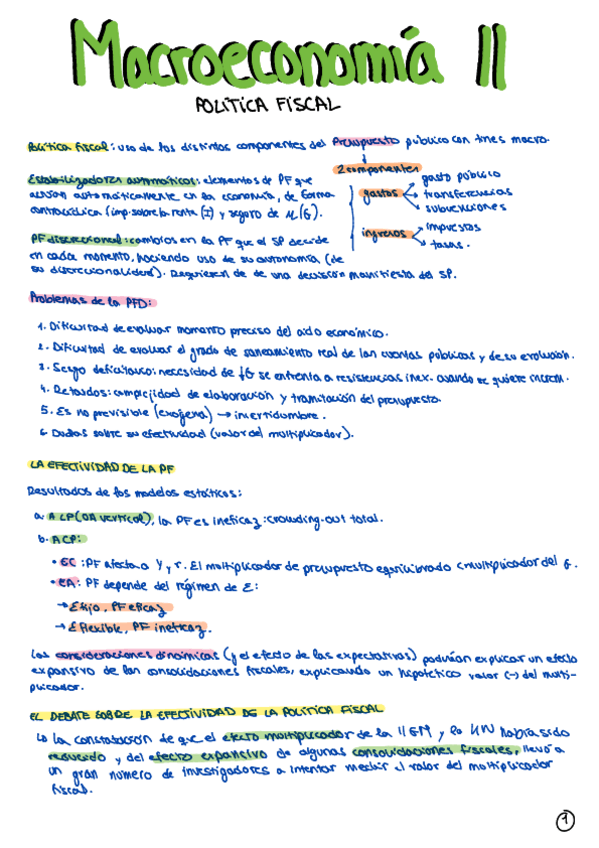 Macroeconomía II
POLÍTICA FISCAL
Política fiscal: uso de los distintos componentes del Presupuesto público con fines macro.
2 componentes
gastos
gasto público
transferencias
subvenciones
ingresos
impuestos
tasas.
Estabilizadores automáticos: elementos de PF que
actúan automáticamente en la economía, de forma
contracíclica (imp. sobre la renta (I) y seguro de (G).
PF discrecional: cambios en la PF que el SP decide
en cada momento, haciendo uso de su autonomía (de
su discrecionalidad). Requieren de de una decisión manifiesta del SP.
Problemas de la PFD:
1. Dificultad de evaluar momento preciso del ciclo económico.
2. Dificultad de evaluar el grado de saneamiento real de las cuentas públicas y de su evolución.
3. Sesgo deficitario: necesidad de ↓G se enfrenta a resistencias inex. cuando se quiere increm.
4. Retardos: complejidad de elaboración y tramitación del presupuesto.
5. Es no previsible (exógena) → incertidumbre.
6. Dudas sobre su efectividad (valor del multiplicador).
LA EFECTIVIDAD DE LA PF
Resultados de los modelos estáticos:
a. A LP (OA vertical), la PF es ineficaz: crowding-out total.
b. A CP:
• EC: PF afecta a Y y r. El multiplicador de presupuesto equilibrado < multiplicador del G.
• EA: PF depende del régimen de E:
→ E fijo, PF eficaz
→ E flexible, PF ineficaz.
Las consideraciones dinámicas (y el efecto de las expectativas) podrían explicar un efecto
expansivo de las consolidaciones fiscales, explicando un hipotético valor (-) del multi-
plicador.
EL DEBATE SOBRE LA EFECTIVIDAD DE LA POLÍTICA FISCAL
↳ La constatación de que el efecto multiplicador de la II GM y la había sido
reducido y del efecto expansivo de algunas consolidaciones fiscales, llevó a
un gran número de investigadores a intentar medir el valor del multiplicador
fiscal.
1